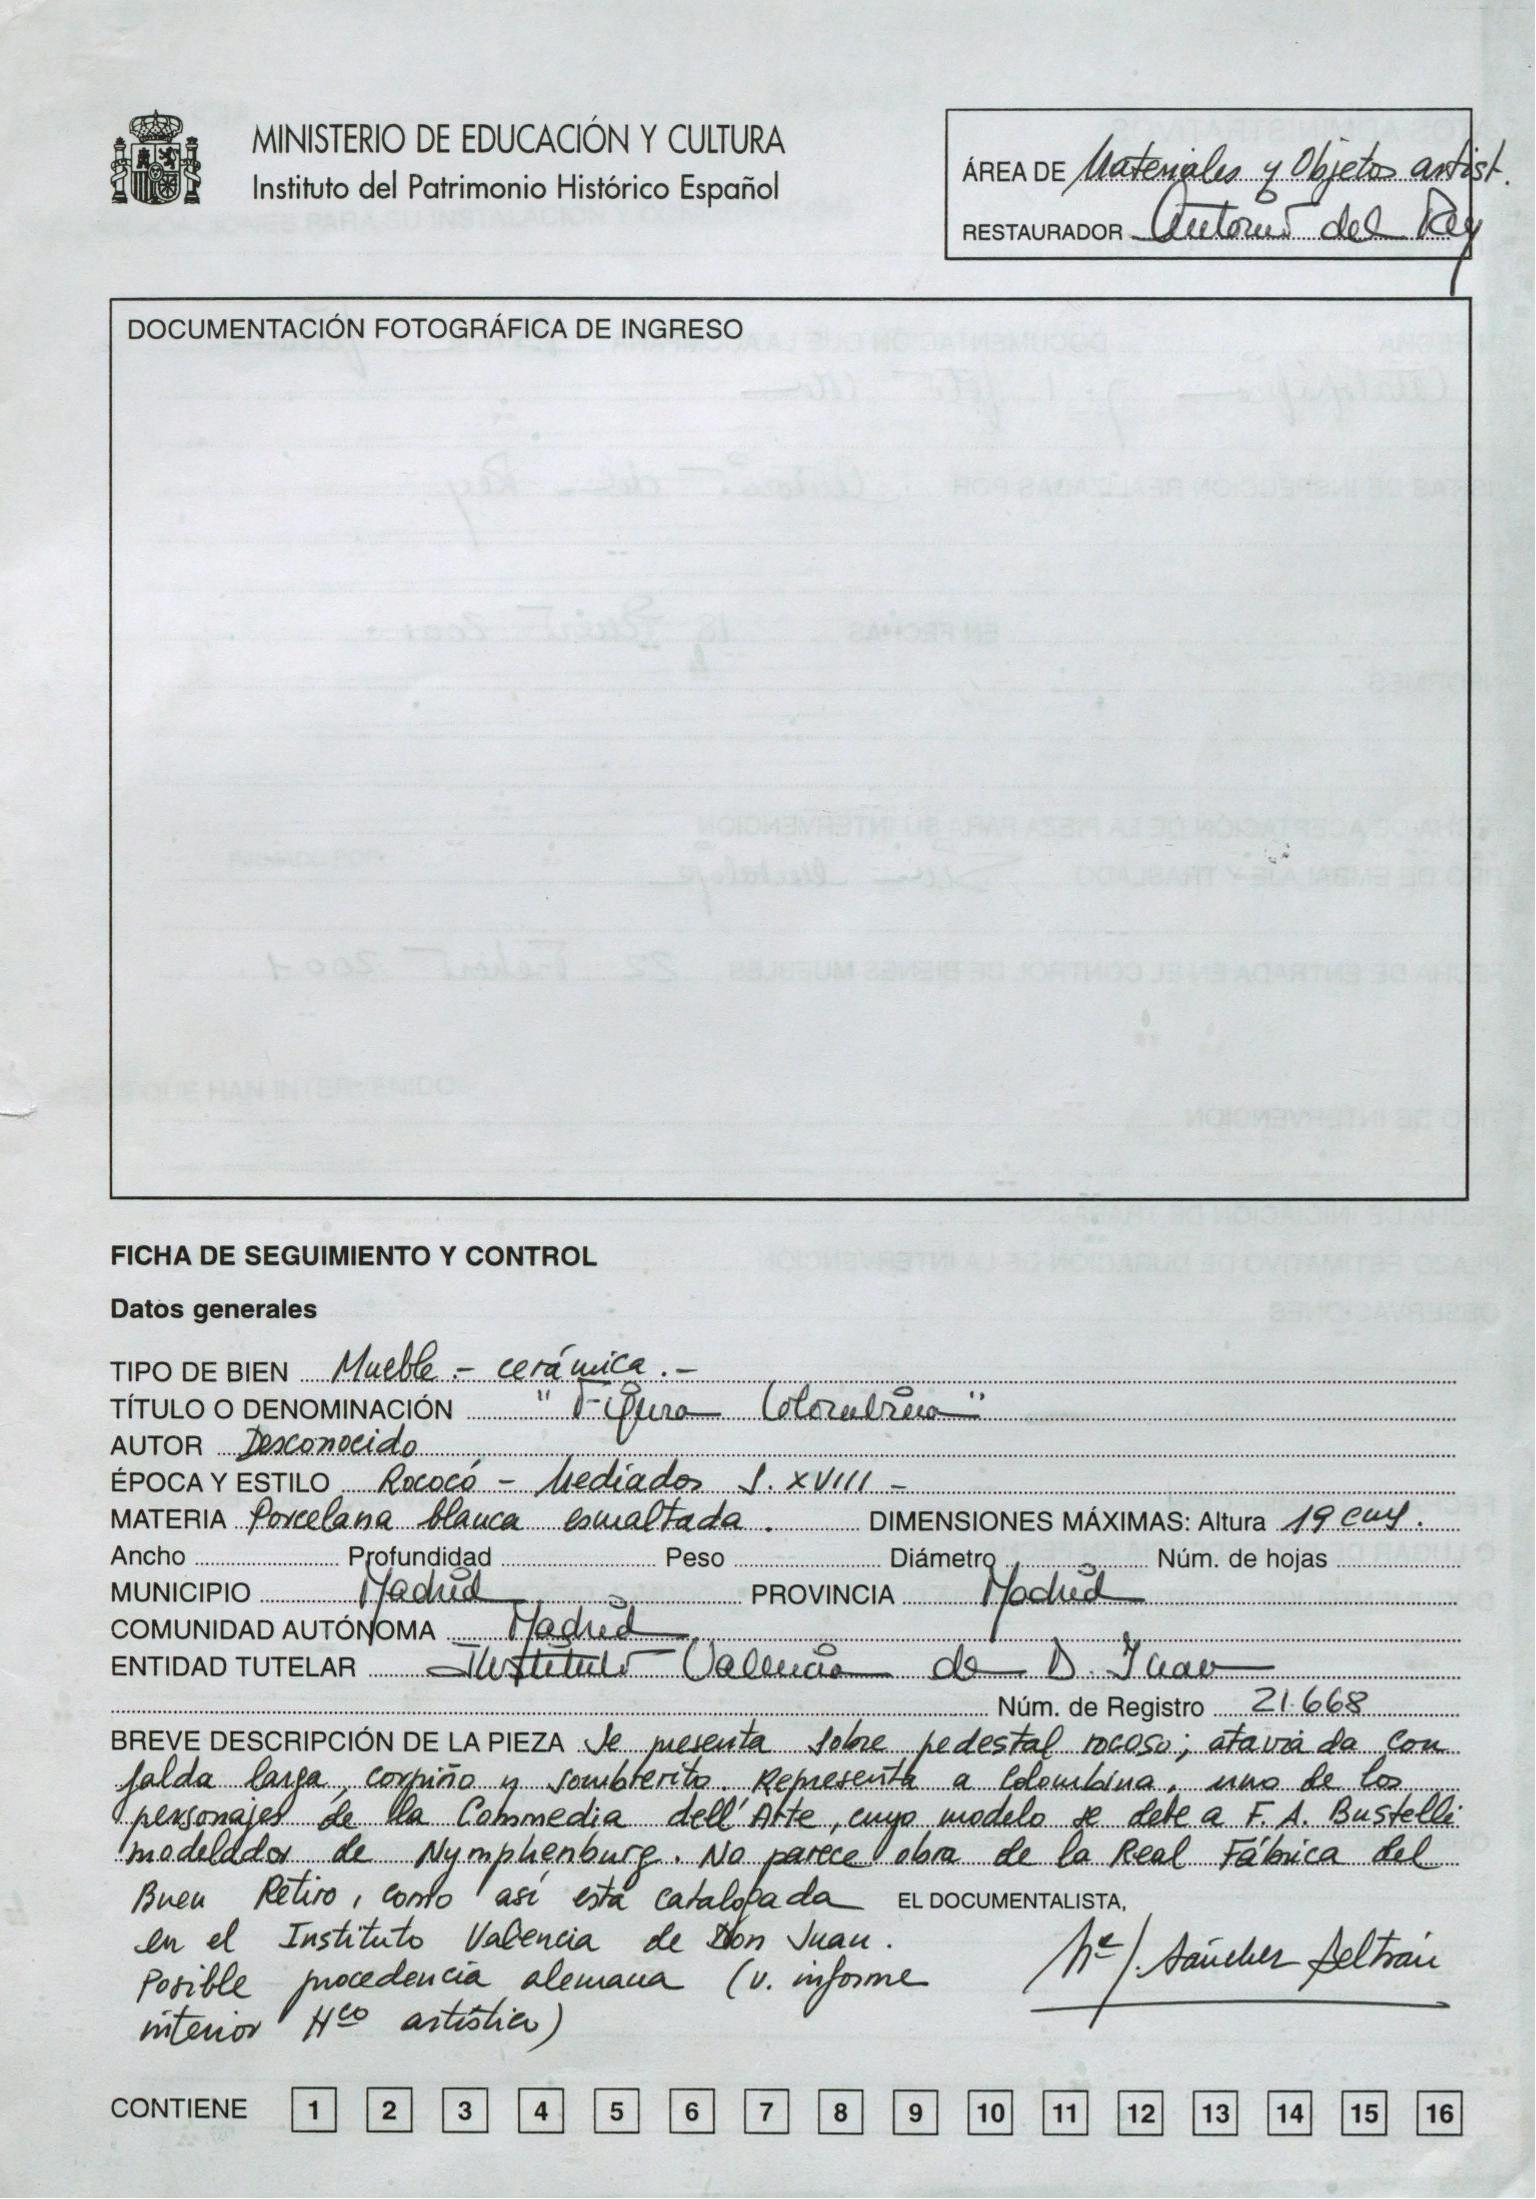 MINISTERIO DE EDUCACIÓN Y CULTURA
Instituto del Patrimonio Histórico Español
ÁREA DE Materiales y Objetos artíst.
RESTAURADOR Antonio del Rey
DOCUMENTACIÓN FOTOGRÁFICA DE INGRESO
FICHA DE SEGUIMIENTO Y CONTROL
Datos generales
TIPO DE BIEN Mueble.- cerámica.-
TÍTULO O DENOMINACIÓN "Figura Colombina"
AUTOR Desconocido
ÉPOCA Y ESTILO Rococó - Mediados S. XVIII -
MATERIA Porcelana blanca esmaltada. DIMENSIONES MÁXIMAS: Altura 19 cms.
Ancho Profundidad Peso Diámetro Núm. de hojas
MUNICIPIO Madrid PROVINCIA Madrid
COMUNIDAD AUTÓNOMA Madrid
ENTIDAD TUTELAR Instituto Valencia de D. Juan
Núm. de Registro 21.668
BREVE DESCRIPCIÓN DE LA PIEZA Se presenta sobre pedestal rocoso; ataviada con
falda larga, corpiño y sombrerito. Representa a Colombina, uno de los
personajes de la Commedia dell'Arte, cuyo modelo se debe a F. A. Bustelli
modelador de Nymphenburg. No parece obra de la Real Fábrica del
Buen Retiro, como así está catalogada
en el Instituto Valencia de Don Juan.
Posible procedencia alemana (v. informe
interior Hco artístico)
EL DOCUMENTALISTA,
Mª J. Sánchez Beltrán
CONTIENE 1 2 3 4 5 6 7 8 9 10 11 12 13 14 15 16